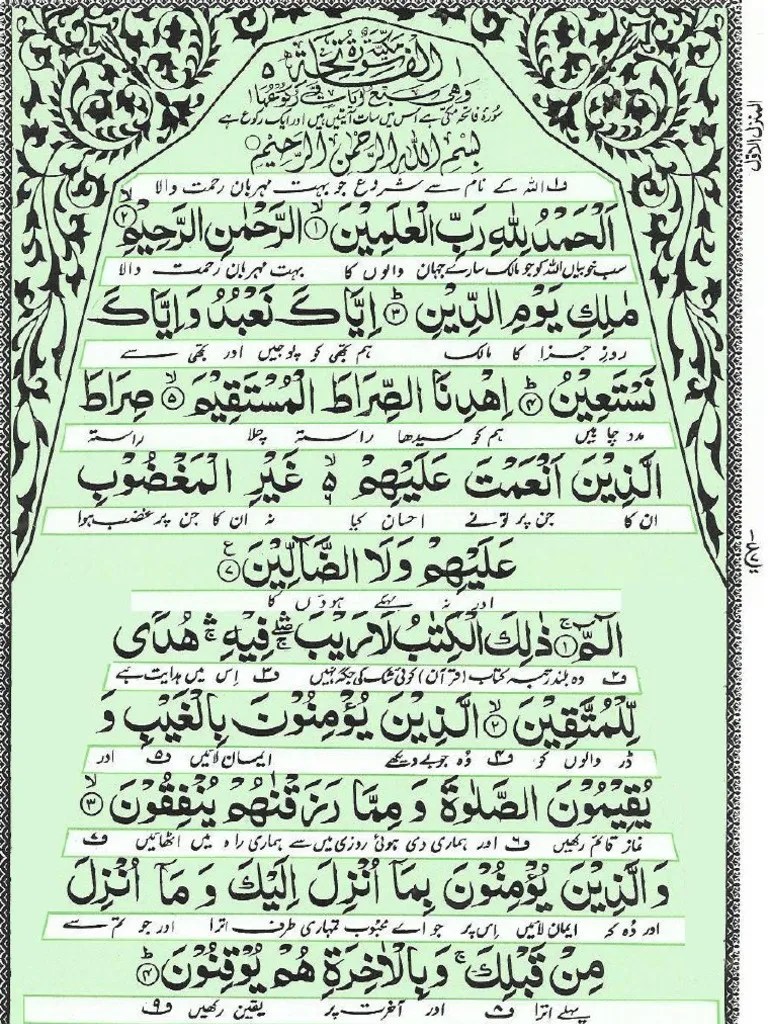 سورة الفاتحة مكية ٥
وهي سبع آيات في ركوعها
سورۂ فاتحہ مکی ہے اس میں سات آیتیں ہیں اور ایک رکوع ہے
بِسْمِ اللهِ الرَّحْمٰنِ الرَّحِيْمِ
ف۱ اللہ کے نام سے شروع جو بہت مہربان رحمت والا
اَلْحَمْدُ لِلّٰهِ رَبِّ الْعٰلَمِيْنَ ۙ﴿۱﴾ الرَّحْمٰنِ الرَّحِيْمِ ۙ﴿۲﴾
سب خوبیاں اللہ کو جو مالک سارے جہان والوں کا بہت مہربان رحمت والا
مٰلِكِ يَوْمِ الدِّيْنِ ؕ﴿۳﴾ اِيَّاكَ نَعْبُدُ وَاِيَّاكَ
روز جزا کا مالک ہم تجھی کو پوجیں اور تجھی سے
نَسْتَعِيْنُ ؕ﴿۴﴾ اِهْدِنَا الصِّرَاطَ الْمُسْتَقِيْمَ ۙ﴿۵﴾ صِرَاطَ
مدد چاہیں ہم کو سیدھا راستہ چلا راستہ
الَّذِيْنَ اَنْعَمْتَ عَلَيْهِمْ ۙ۬ۦ غَيْرِ الْمَغْضُوْبِ
ان کا جن پر تو نے احسان کیا نہ ان کا جن پر غضب ہوا
عَلَيْهِمْ وَلَا الضَّآلِّيْنَ ﴿۷﴾ ع
اور نہ بہکے ہوؤں کا
الٓمّٓ ۚ﴿۱﴾ ذٰلِكَ الْكِتٰبُ لَا رَيْبَ ۛۖۚ فِيْهِ ۛۚ هُدًى
ف۲ وہ بلند رتبہ کتاب (قرآن) کوئی شک کی جگہ نہیں ف۳ اس میں ہدایت ہے
لِّلْمُتَّقِيْنَ ۙ﴿۲﴾ الَّذِيْنَ يُؤْمِنُوْنَ بِالْغَيْبِ وَ
ڈر والوں کو ف۴ وہ جو بے دیکھے ایمان لائیں ف۵ اور
يُقِيْمُوْنَ الصَّلٰوةَ وَمِمَّا رَزَقْنٰهُمْ يُنْفِقُوْنَ ۙ﴿۳﴾
نماز قائم رکھیں ف۶ اور ہماری دی ہوئی روزی میں سے ہماری راہ میں اٹھائیں ف۷
وَالَّذِيْنَ يُؤْمِنُوْنَ بِمَآ اُنْزِلَ اِلَيْكَ وَمَآ اُنْزِلَ
اور وہ کہ ایمان لائیں اس پر جو اے محبوب تمہاری طرف اترا اور جو تم سے
مِنْ قَبْلِكَ ۚ وَبِالْاٰخِرَةِ هُمْ يُوْقِنُوْنَ ؕ﴿۴﴾
پہلے اترا ف۸ اور آخرت پر یقین رکھیں ف۹
المنزل الاول